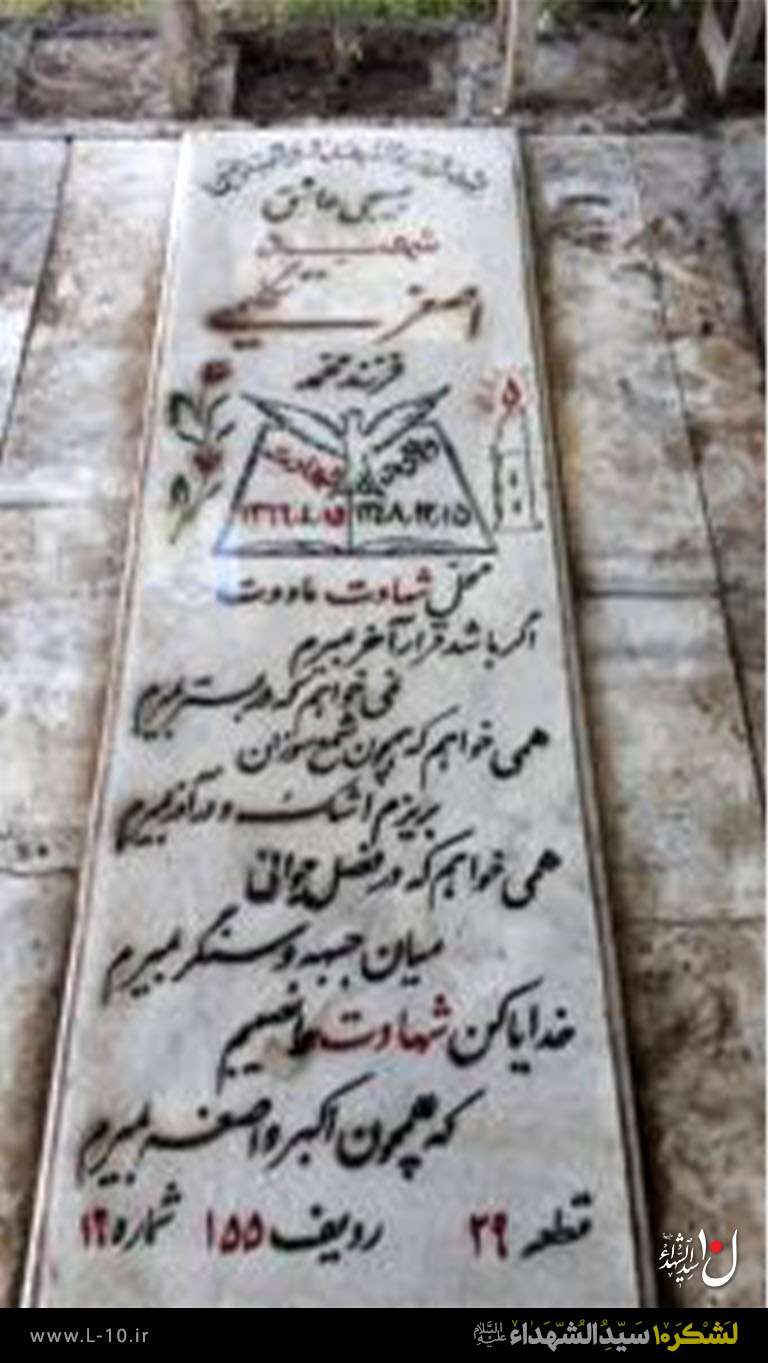 بسیجی عاشق
شهید
اصغر
فرزند محمد
ولادت شهادت
محل شهادت ماووت
اگر باشد قرار آخر بمیرم
نمی خواهم که در بستر بمیرم
همی خواهم که همچون شمع سوزان
بریزم اشک و در آذر بمیرم
همی خواهم که در فصل جوانی
میان جبهه و سنگر بمیرم
خدایا کن شهادت را نصیبم
که همچون اکبر و اصغر بمیرم
قطعه ۲۹ ردیف ۱۵۵ شماره ۱۹
لشکر ۱۰ سید الشهداء علیه السلام
www.L-10.ir